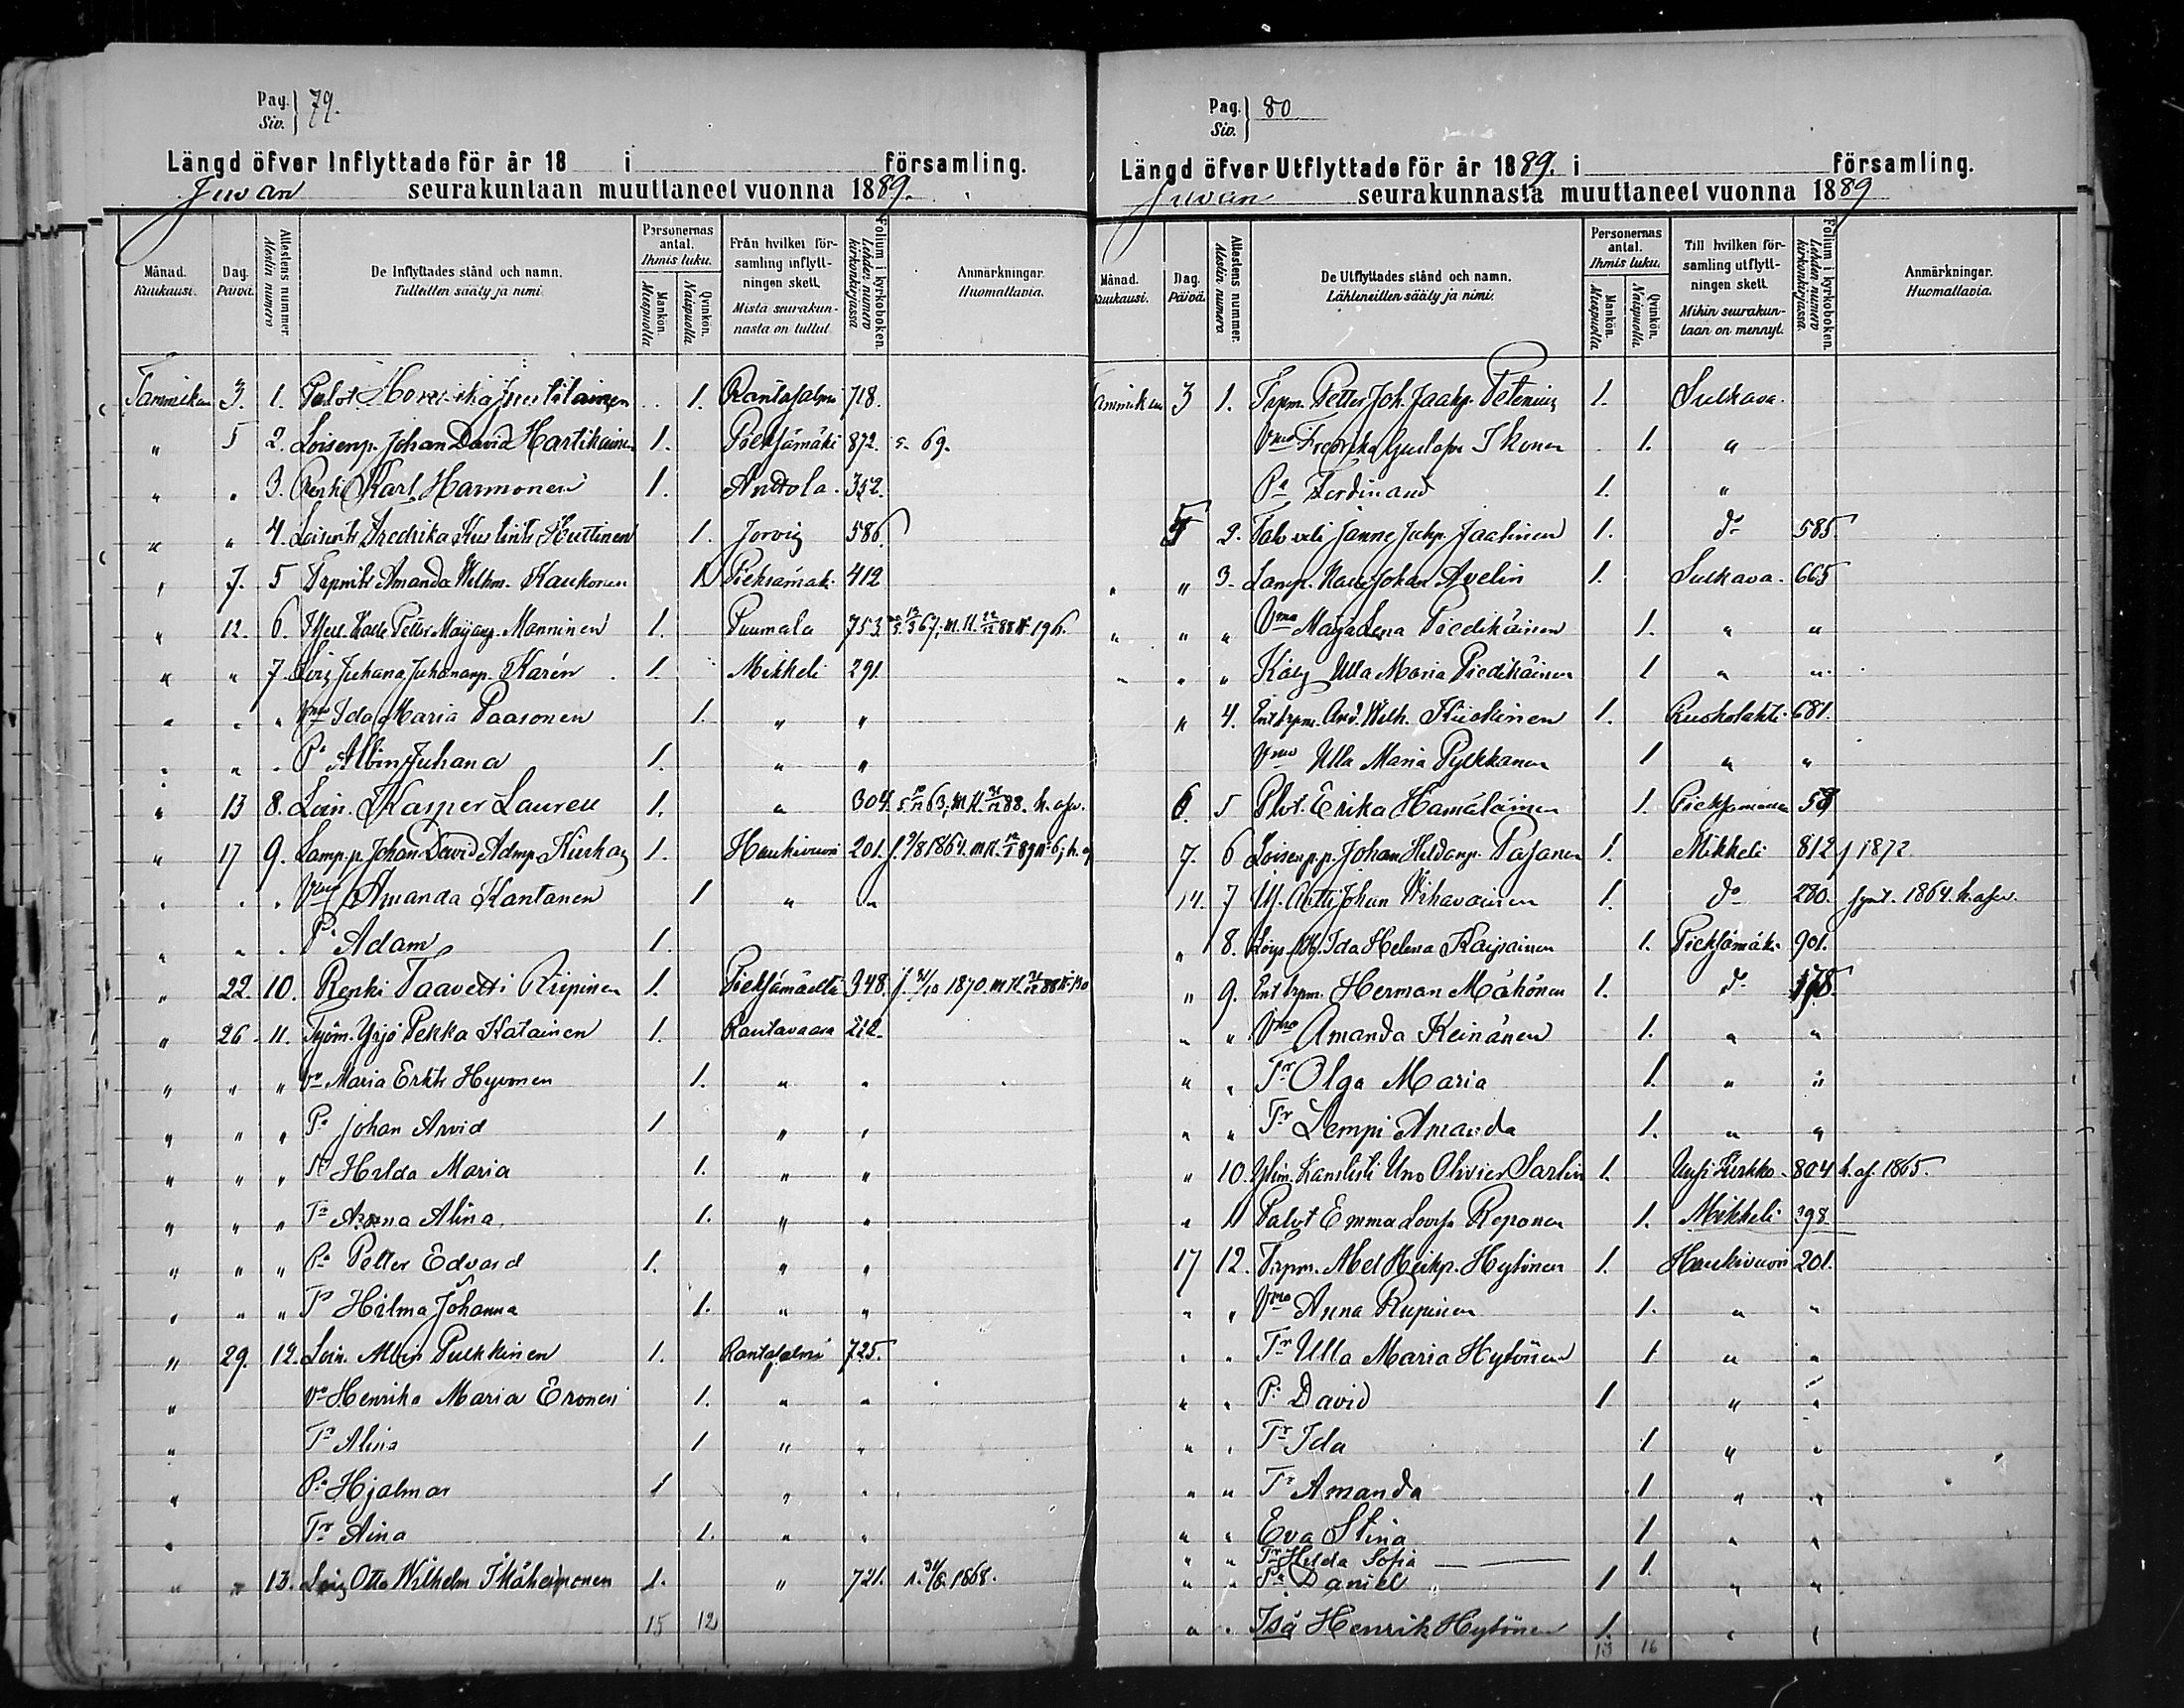 Pag. Siv. } 79.
Längd öfver Inflyttade för år 18 i församling.
Juvan seurakuntaan muuttaneet vuonna 1889.
Månad. Kuukausi. | Dag. Päivä. | Attestens nummer. Atestin numero | De Inflyttades stånd och namn. Tulleitten sääty ja nimi | Personernas antal. Ihmis luku. Mankön. Miespuolia | Qvinkön. Naispuolia | Från hvilken församling inflyttningen skett. Mista seurakunnasta on tullut | Folium i kyrkoboken. Lehden numero kirkonkirjassa | Anmärkningar. Huomattavia.
Tammikuu 3. 1. 1. Rantasalmi 718.
" 5 2. Loisenp. Johan David Hartikainen 1. Pieksämäki 872. s. 69.
" " 3. Renki Karl Harmonen 1. Anttola. 352.
" " 4. Fredrika 1. Jorois 586.
" 7. 5 Amanda Wilhm. Kaukonen 1. Pieksämäk. 412
" 12. 6. Kalle Petter Manninen 1. Puumala 753. 196.
" " 7. Lois Juhana Juhananp. Karén 1. Mikkeli 291.
" " " Vmo Ida Maria Paasonen 1. " "
" " " Pa Albin Juhana 1. " "
" 13 8. Loin. Kasper Laurell 1. " 304. 63,
" 17 9. Lamp.p. Johan David Admp. 1. Haukivuori 201. 1864.
" " " Vmo Amanda Kantanen 1 " "
" " " Pa Adam 1.
" 22. 10. Renki Taavetti Riipinen 1. Pieksämäeltä 348. 1870.
" 26. 11. Työm. Yrjö Pekka Katainen 1. Rautavaara 212.
" " " Vo Maria Erkts Hyvönen 1. " "
" " " Pa Johan Arvid 1 " "
" " " Hilda Maria 1. " "
" " " Tr Anna Alina 1. " "
" " " Pa Petter Edvard 1. " "
" " " Tr Hilma Johanna 1. " "
" 29. 12. Loin. Albin Pulkkinen 1. Rantasalmi 725.
" Vo Henrika Maria Eronen 1. " "
" Tr Alina 1 " "
" Pa Hjalmar 1 " "
" Tr Aina 1. " "
" " 13. Otto Wilhelm Ikäheimonen 1. " 721. 1868.
15 12
Pag. Siv. } 80
Längd öfver Utflyttade för år 1889. i församling.
Juvan seurakunnasta muuttaneet vuonna 1889
Månad. Kuukausi. | Dag. Päivä. | Attestens nummer. Atestin numero | De Utflyttades stånd och namn. Lähteneitten sääty ja nimi. | Personernas antal. Ihmis luku. Mankön. Miespuolia | Qvinkön. Naispuolia. | Till hvilken församling utflyttningen skett. Mihin seurakuntaan on mennyt. | Folium i kyrkoboken. Lehden numero kirkonkirjassa. | Anmärkningar. Huomattavia.
Tammikuu 3 1. Trpm. Petter Joh. Jaakp. Petenius 1. Sulkava.
Vmo Fredrika Gustafva Ikonen 1. "
Pa Ferdinand 1. "
5 2. Janne Juhp. Jaatinen 1. do 585.
" " 3. Lamp. Johan Avelin 1. Sulkava. 665
" " " Vmo Maja Lena Piedikäinen 1. " "
" " " Käly Ulla Maria Piedikäinen 1 " "
" 4. Ent trpm. Arv. Wilh. Kuokinen 1. Ruokolahti. 681.
Vmo Ulla Maria Pylkkanen 1 " "
6. 5 Plvt. Erika Hämäläinen 1.
7. 6 Loisenp.p. Johan Pajanen 1. Mikkeli 812 1872.
14. 7 Antti Johan Vihavainen 1. do 280. synt. 1864.
" 8. Ida Helena Kaipainen 1. Pieksämäki 901.
" 9. Ent trpm. Herman Mähönen 1. do 178.
" " Vmo Amanda Keinänen 1. " "
" " Tr Olga Maria 1. " "
" " Tr Lempi Amanda 1. " "
" 10. Ylim. Kanslisti Uno Olivier Sarlin 1. Uusi Kirkko 804 1865.
" 11 Palvt Emma Lovisa Reponen 1. Mikkeli 298
17 12. Trpm. Abel Heikp. Hytönen 1. Haukivuori 201.
" " Vmo Anna Rupinen 1. " "
" " Tr Ulla Maria Hytönen 1 " "
" " Pa David 1 " "
" " Tr Ida 1 " "
" " Tr Amanda 1 " "
" " Eva Stina 1 " "
" " Tr Hilda Sofia 1.
" " Pa Daniel 1 " "
" " Isä Henrik Hytönen 1. " "
13 16